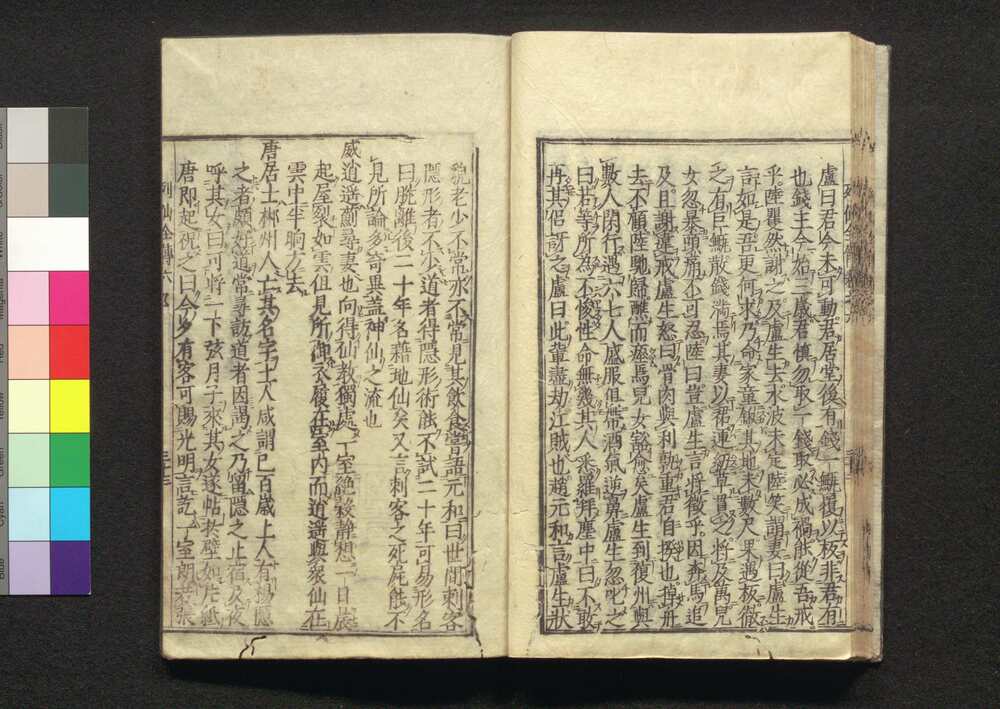 盧曰君今未可動君居堂後有錢一甒覆以板非君有
也錢主今始三歲君慎勿取一錢取必成禍能從吾戒
乎陸瞿然謝之及盧生去水波未定陸笑謂妻曰盧生
言如是吾更何求乃命家童鍬其地未數尺果遇板徹
之有巨甒散錢滿焉其妻以裙運紉草貫之將及萬兒
女忽暴頭痛不可忍陸曰豈盧生言將徵乎因奔馬追
及且謝違戒盧生怒曰骨肉與利孰重君自揆也掉舟
去不顧陸馳歸醮而瘞焉兒女豁愈矣盧生到復州與
數人閒行遇六七人盛服俱帶酒氣逆鼻盧生忽叱之
曰若等所為不悛性命無幾其人悉羅拜塵中曰不敢
再其侶訝之盧曰此輩盡劫江賊也趙元和言盧生狀
貌老少不常亦不常見其飲食嘗語元和曰世間刺客
隱形者不少道者得隱形術能不試二十年可易形名
曰脫離後二十年名籍地仙矣又言刺客之死屍能不
見所論多奇異蓋神仙之流也
威逍遥薊尋妻也向得仙教獨處一室絕穀靜想一日晨
起屋裂如雲但見所御衣履在室内而逍遥與衆仙在
雲中半晌乃去
唐居士郴州人亡其名字土人咸謂已百歲上人有楊隱
之者頗好道常尋訪道者因謁之乃留隱之止宿及夜
呼其女曰可將一下弦月子來其女遂帖於壁如片紙
唐即起祝之曰今夕有客可賜光明言訖一室朗若張
列仙全傳六卷
三三